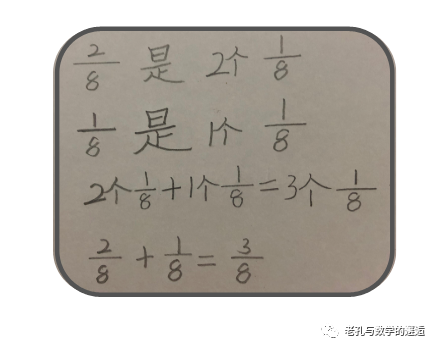 2/8 是 2个 1/8
1/8 是 1个 1/8
2个 1/8 + 1个 1/8 = 3个 1/8
2/8 + 1/8 = 3/8
老孔与数学的邂逅